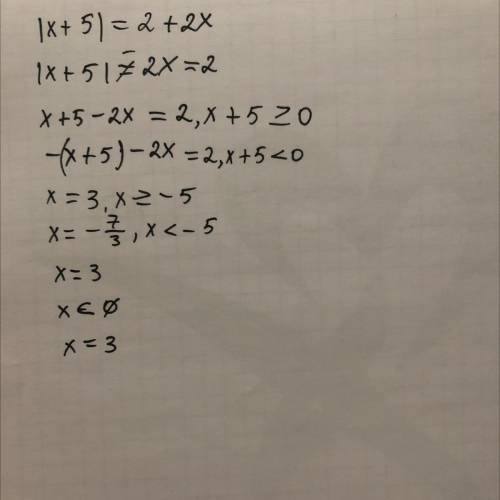 |x+5| = 2+2x
|x+5| - 2x = 2
x+5-2x = 2, x+5 ≥ 0
-(x+5)-2x = 2, x+5 < 0
x = 3, x ≥ -5
x = -7/3, x < -5
x = 3
x ∈ ∅
x = 3